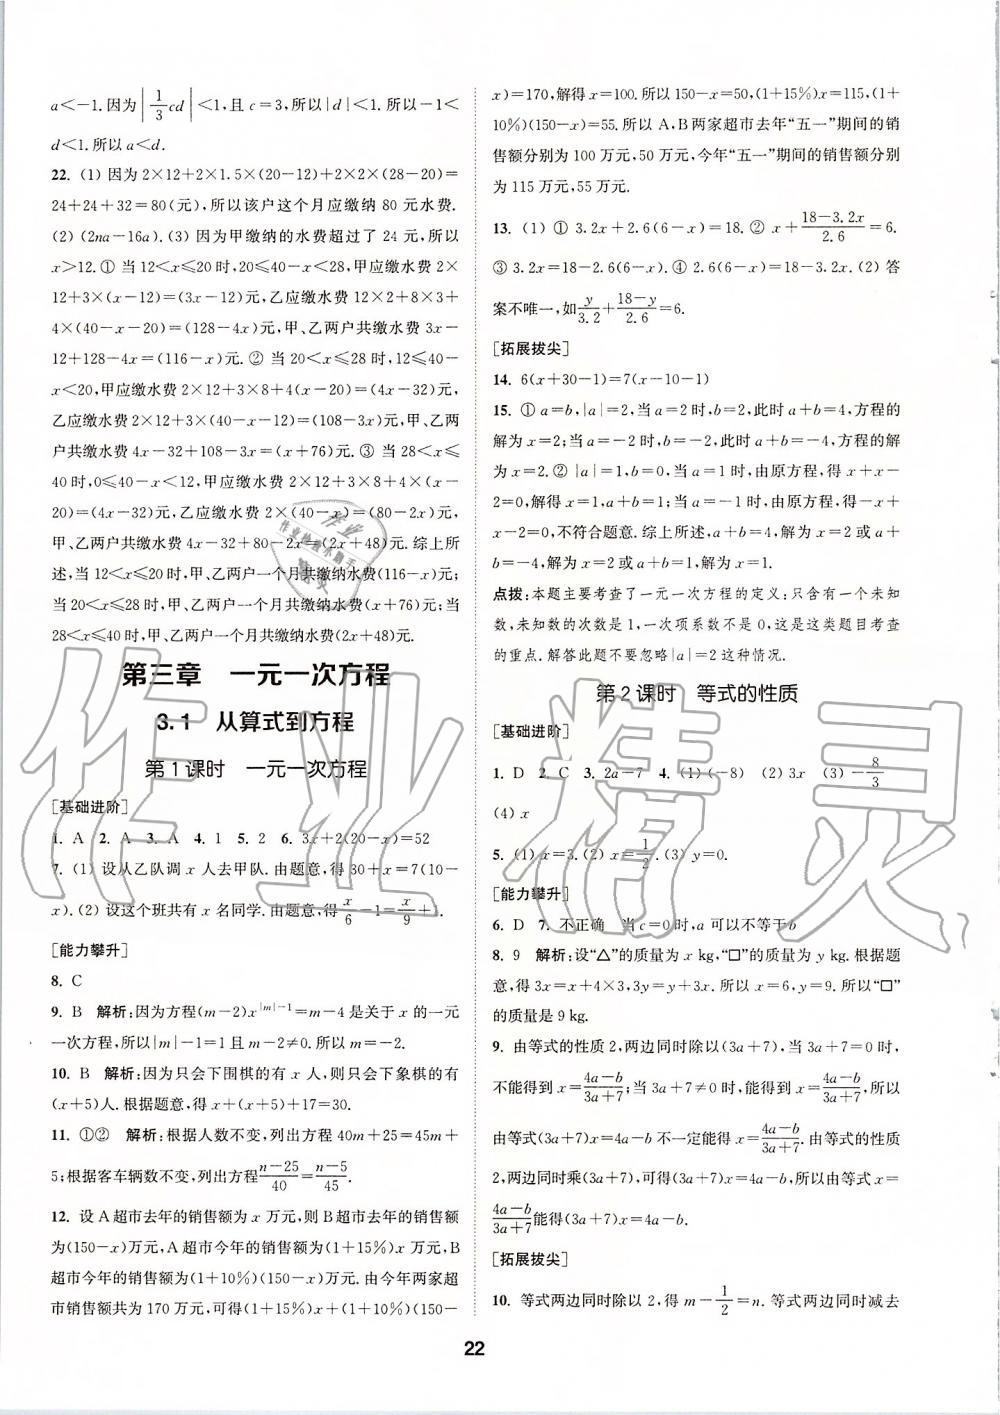 a<-1.因为|1/3cd|<1,且c=3,所以|d|<1.所以-1<
d<1.所以a<d.
22. (1) 因为2×12+2×1.5×(20-12)+2×2×(28-20)=
24+24+32=80(元),所以该户这个月应缴纳 80 元水费.
(2) (2na-16a). (3) 因为甲缴纳的水费超过了 24 元,所以
x>12.① 当12<x≤20时,20≤40-x<28,甲应缴水费2×
12+3×(x-12)=(3x-12)元,乙应缴水费12×2+8×3+
4×(40-x-20)=(128-4x)元,甲、乙两户共缴水费3x-
12+128-4x=(116-x)元.② 当20<x≤28时,12≤40-
x<20,甲应缴水费2×12+3×8+4(x-20)=(4x-32)元,
乙应缴水费2×12+3×(40-x-12)=(108-3x)元,甲、乙两
户共缴水费4x-32+108-3x=(x+76)元.③ 当28<x≤
40时,0≤40-x<12,甲应缴水费2×12+3×8+4×(x-20)=
(4x-32)元,乙应缴水费 2×(40-x)=(80-2x)元,
甲、乙两户共缴水费4x-32+80-2x=(2x+48)元.综上所
述,当12<x≤20时,甲、乙两户一个月共缴纳水费(116-x)元;
当20<x≤28时,甲、乙两户一个月共缴纳水费(x+76)元;当
28<x≤40时,甲、乙两户一个月共缴纳水费(2x+48)元.
第三章 一元一次方程
3.1 从算式到方程
第1课时 一元一次方程
[基础进阶]
1. A 2. A 3. A 4. 1 5. 2 6. 3x+2(20-x)=52
7. (1) 设从乙队调 x 人去甲队.由题意,得30+x=7(10-
x). (2) 设这个班共有 x 名同学.由题意,得x/6-1=x/9+1.
[能力攀升]
8. C
9. B 解析:因为方程(m-2)x^{|m|-1}=m-4是关于 x 的一元
一次方程,所以|m|-1=1且m-2≠0.所以m=-2.
10. B 解析:因为只会下围棋的有 x 人,则只会下象棋的有
(x+5)人.根据题意,得x+(x+5)+17=30.
11. ①② 解析:根据人数不变,列出方程40m+25=45m+
5;根据客车辆数不变,列出方程(n-25)/40=(n-5)/45.
12. 设A超市去年的销售额为 x 万元,则B超市去年的销售额
为(150-x)万元,A超市今年的销售额为(1+15%)x万元,B
超市今年的销售额为(1+10%)(150-x)万元.由今年两家超
市销售额共为 170 万元,可得(1+15%)x+(1+10%)(150-
x)=170,解得x=100.所以150-x=50,(1+15%)x=115,(1+
10%)(150-x)=55.所以A,B两家超市去年“五一”期间的销
售额分别为 100 万元,50 万元,今年“五一”期间的销售额分别
为 115 万元,55 万元.
13. (1) ① 3.2x+2.6(6-x)=18. ② x+(18-3.2x)/2.6=6.
③ 3.2x=18-2.6(6-x). ④ 2.6(6-x)=18-3.2x. (2) 答
案不唯一,如y/3.2+(18-y)/2.6=6.
[拓展拔尖]
14. 6(x+30-1)=7(x-10-1)
15. ① a=b,|a|=2,当a=2时,b=2,此时a+b=4,方程的
解为x=2;当a=-2时,b=-2,此时a+b=-4,方程的解
为x=2.② |a|=1,b=0,当a=1时,由原方程,得x+x-
2=0,解得x=1,a+b=1;当a=-1时,由原方程,得-x+
x-2=0,不符合题意.综上所述,a+b=4,解为x=2或a+
b=-4,解为x=2或a+b=1,解为x=1.
点拨:本题主要考查了一元一次方程的定义:只含有一个未知
数,未知数的次数是1,一次项系数不是0,这是这类题目考查
的重点.解答此题不要忽略|a|=2这种情况.
第2课时 等式的性质
[基础进阶]
1. D 2. C 3. 2a-7 4. (1) (-8) (2) 3x (3) -8/3
(4) x
5. (1) x=3. (2) x=1/2. (3) y=0.
[能力攀升]
6. D 7. 不正确 当c=0时,a 可以不等于b
8. 9 解析:设“△”的质量为 x kg,“□”的质量为 y kg.根据题
意,得3x=x+4×3,3y=y+3x.所以x=6,y=9.所以“□”
的质量是9 kg.
9. 由等式的性质2,两边同时除以(3a+7),当3a+7=0时,
不能得到x=(4a-b)/(3a+7);当3a+7≠0时,能得到x=(4a-b)/(3a+7),所以
由等式(3a+7)x=4a-b不一定能得x=(4a-b)/(3a+7).由等式的性质
2,两边同时乘(3a+7),可得(3a+7)x=4a-b,所以由等式x=
(4a-b)/(3a+7)能得(3a+7)x=4a-b.
[拓展拔尖]
10. 等式两边同时除以2,得m-1/2=n.等式两边同时减去
22
作业精灵